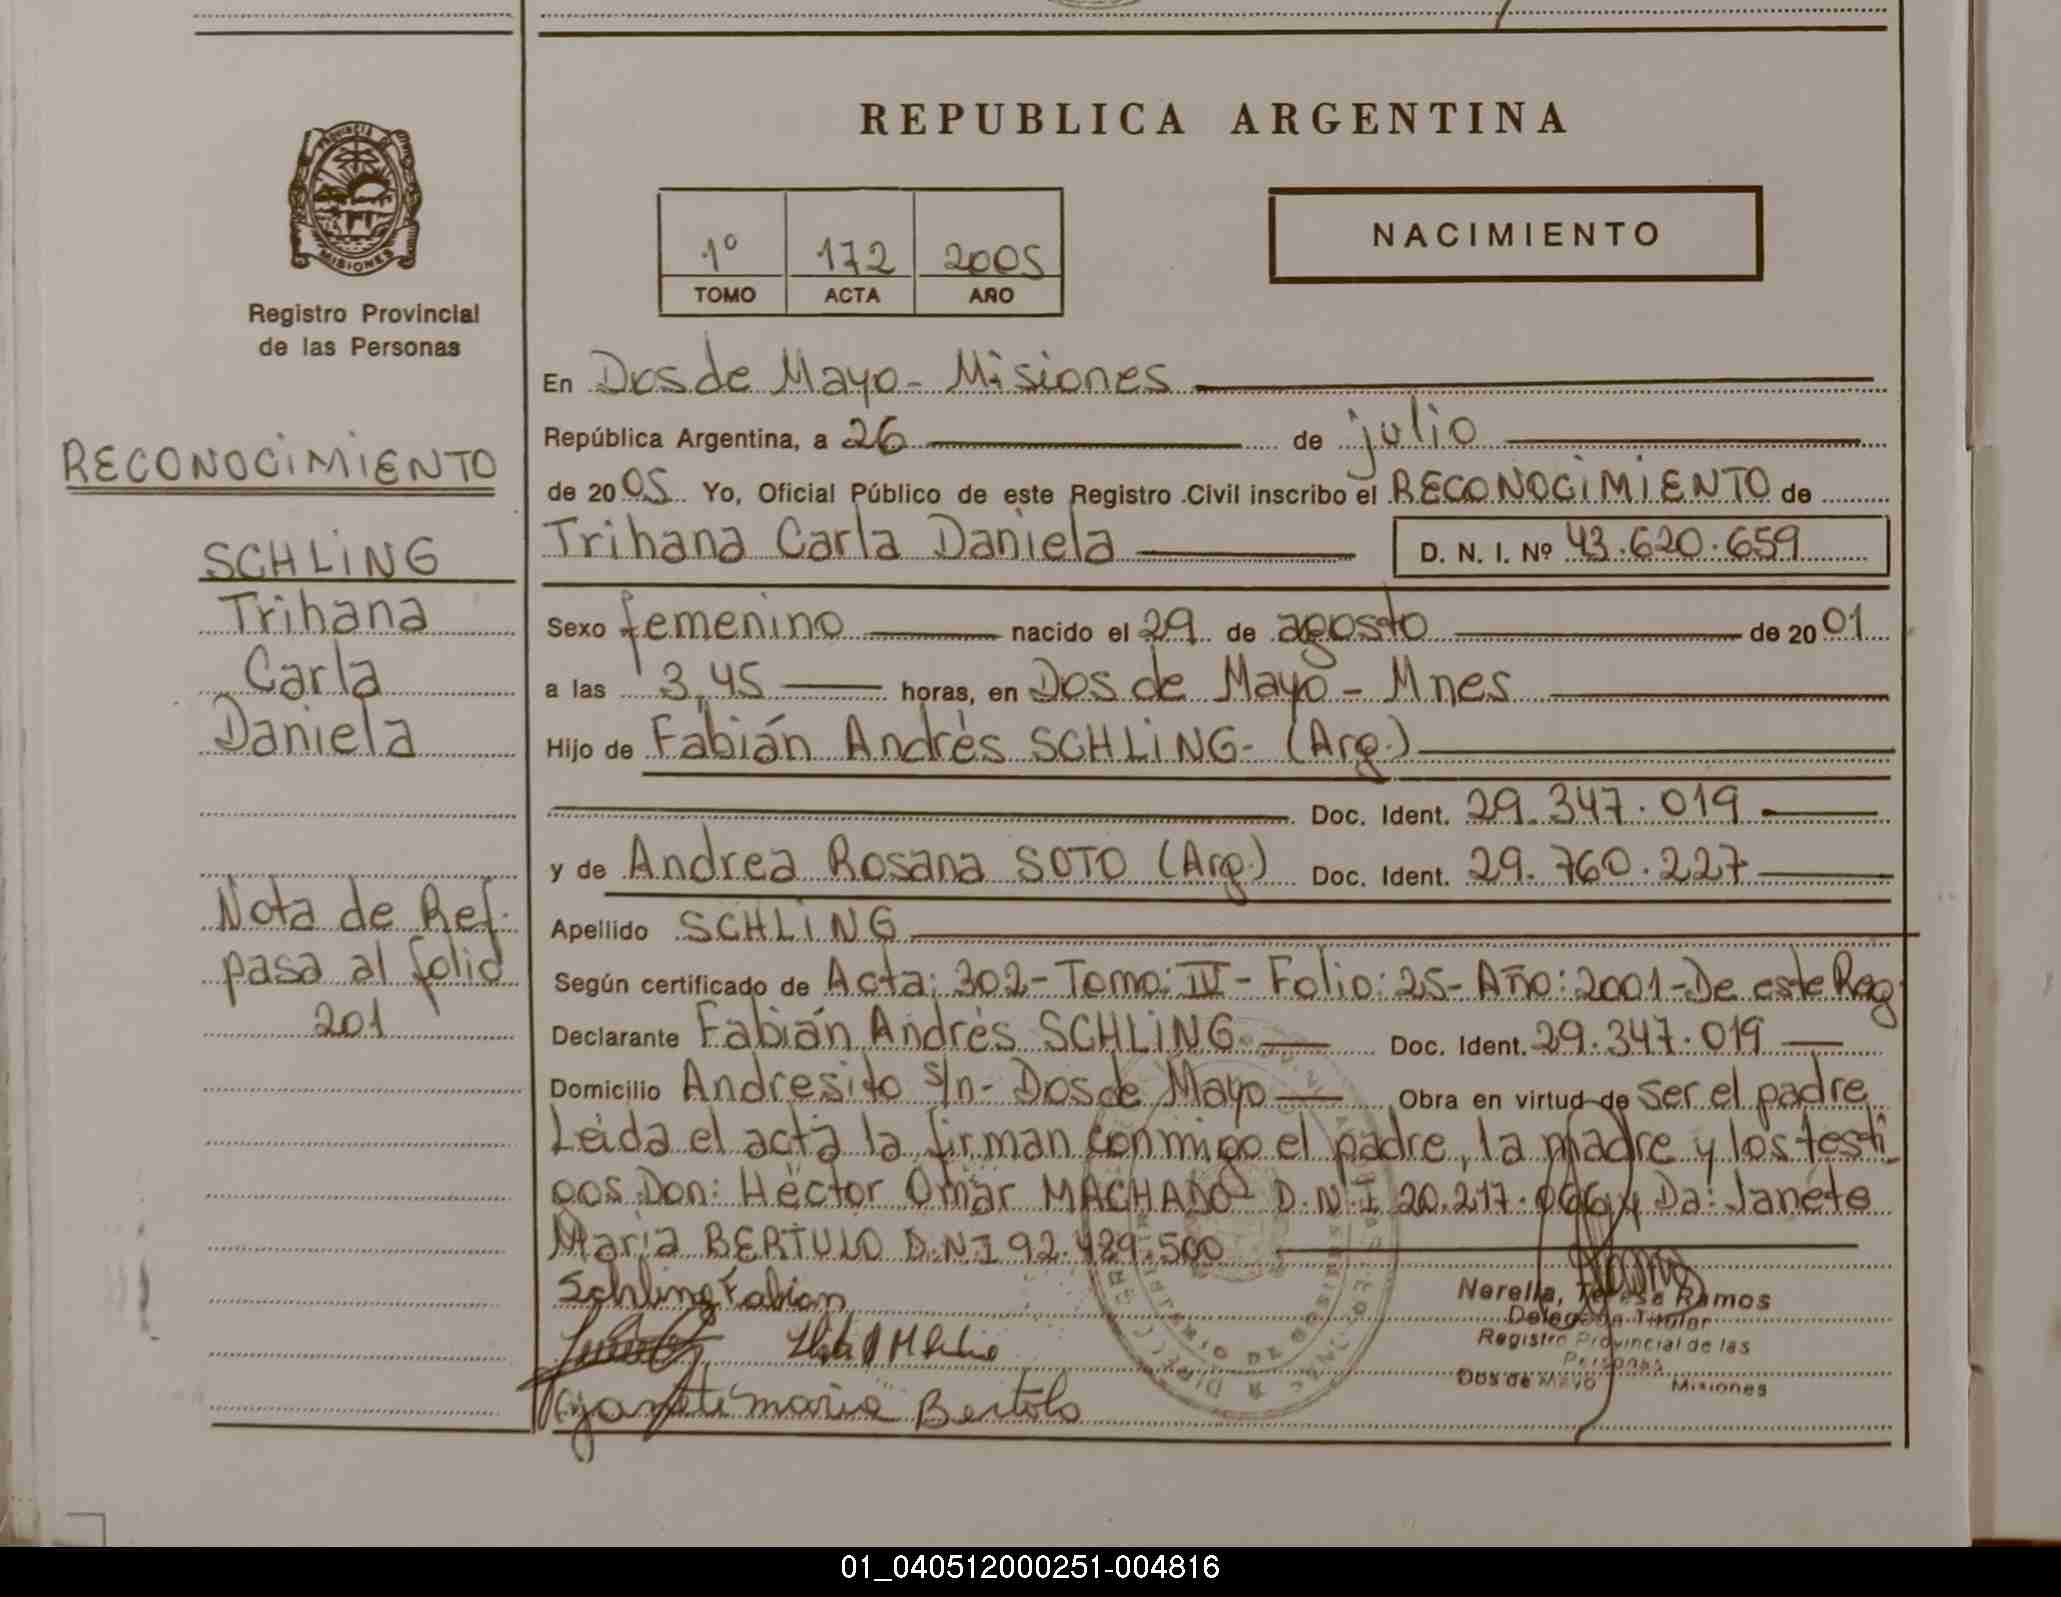 PROVINCIA DE
MISIONES
Registro Provincial
de las Personas
RECONOCIMIENTO
SCHLING
Trihana
Carla
Daniela
Nota de Ref.
pasa al folio
201
REPUBLICA ARGENTINA
1º 172 2005
TOMO ACTA AÑO
NACIMIENTO
En Dos de Mayo - Misiones
República Argentina, a 26 de julio
de 2005 Yo, Oficial Público de este Registro Civil inscribo el RECONOCIMIENTO de
Trihana Carla Daniela D. N. I. Nº 43.620.659
Sexo femenino nacido el 29 de agosto de 2001
a las 3,45 horas, en Dos de Mayo - Mnes
Hijo de Fabián Andrés SCHLING - (Arg.)
Doc. Ident. 29.347.019
y de Andrea Rosana SOTO (Arg.) Doc. Ident. 29.760.227
Apellido SCHLING
Según certificado de Acta: 302 - Tomo: IV - Folio: 25 - Año: 2001 - De este Reg.
Declarante Fabián Andrés SCHLING Doc. Ident. 29.347.019
Domicilio Andresito s/n - Dos de Mayo Obra en virtud de ser el padre
Leida el acta la firman conmigo el padre, la madre y los testi
gos Don: Héctor Omar MACHADO D.N.I 20.217.066 y Da: Janete
Maria BERTULO D.N.I 92.489.500
Schling Fabian
Janete maria Bertolo
Nerella, Teresa Ramos
Delegada Titular
Registro Provincial de las
Personas
Dos de Mayo Misiones
01_040512000251-004816